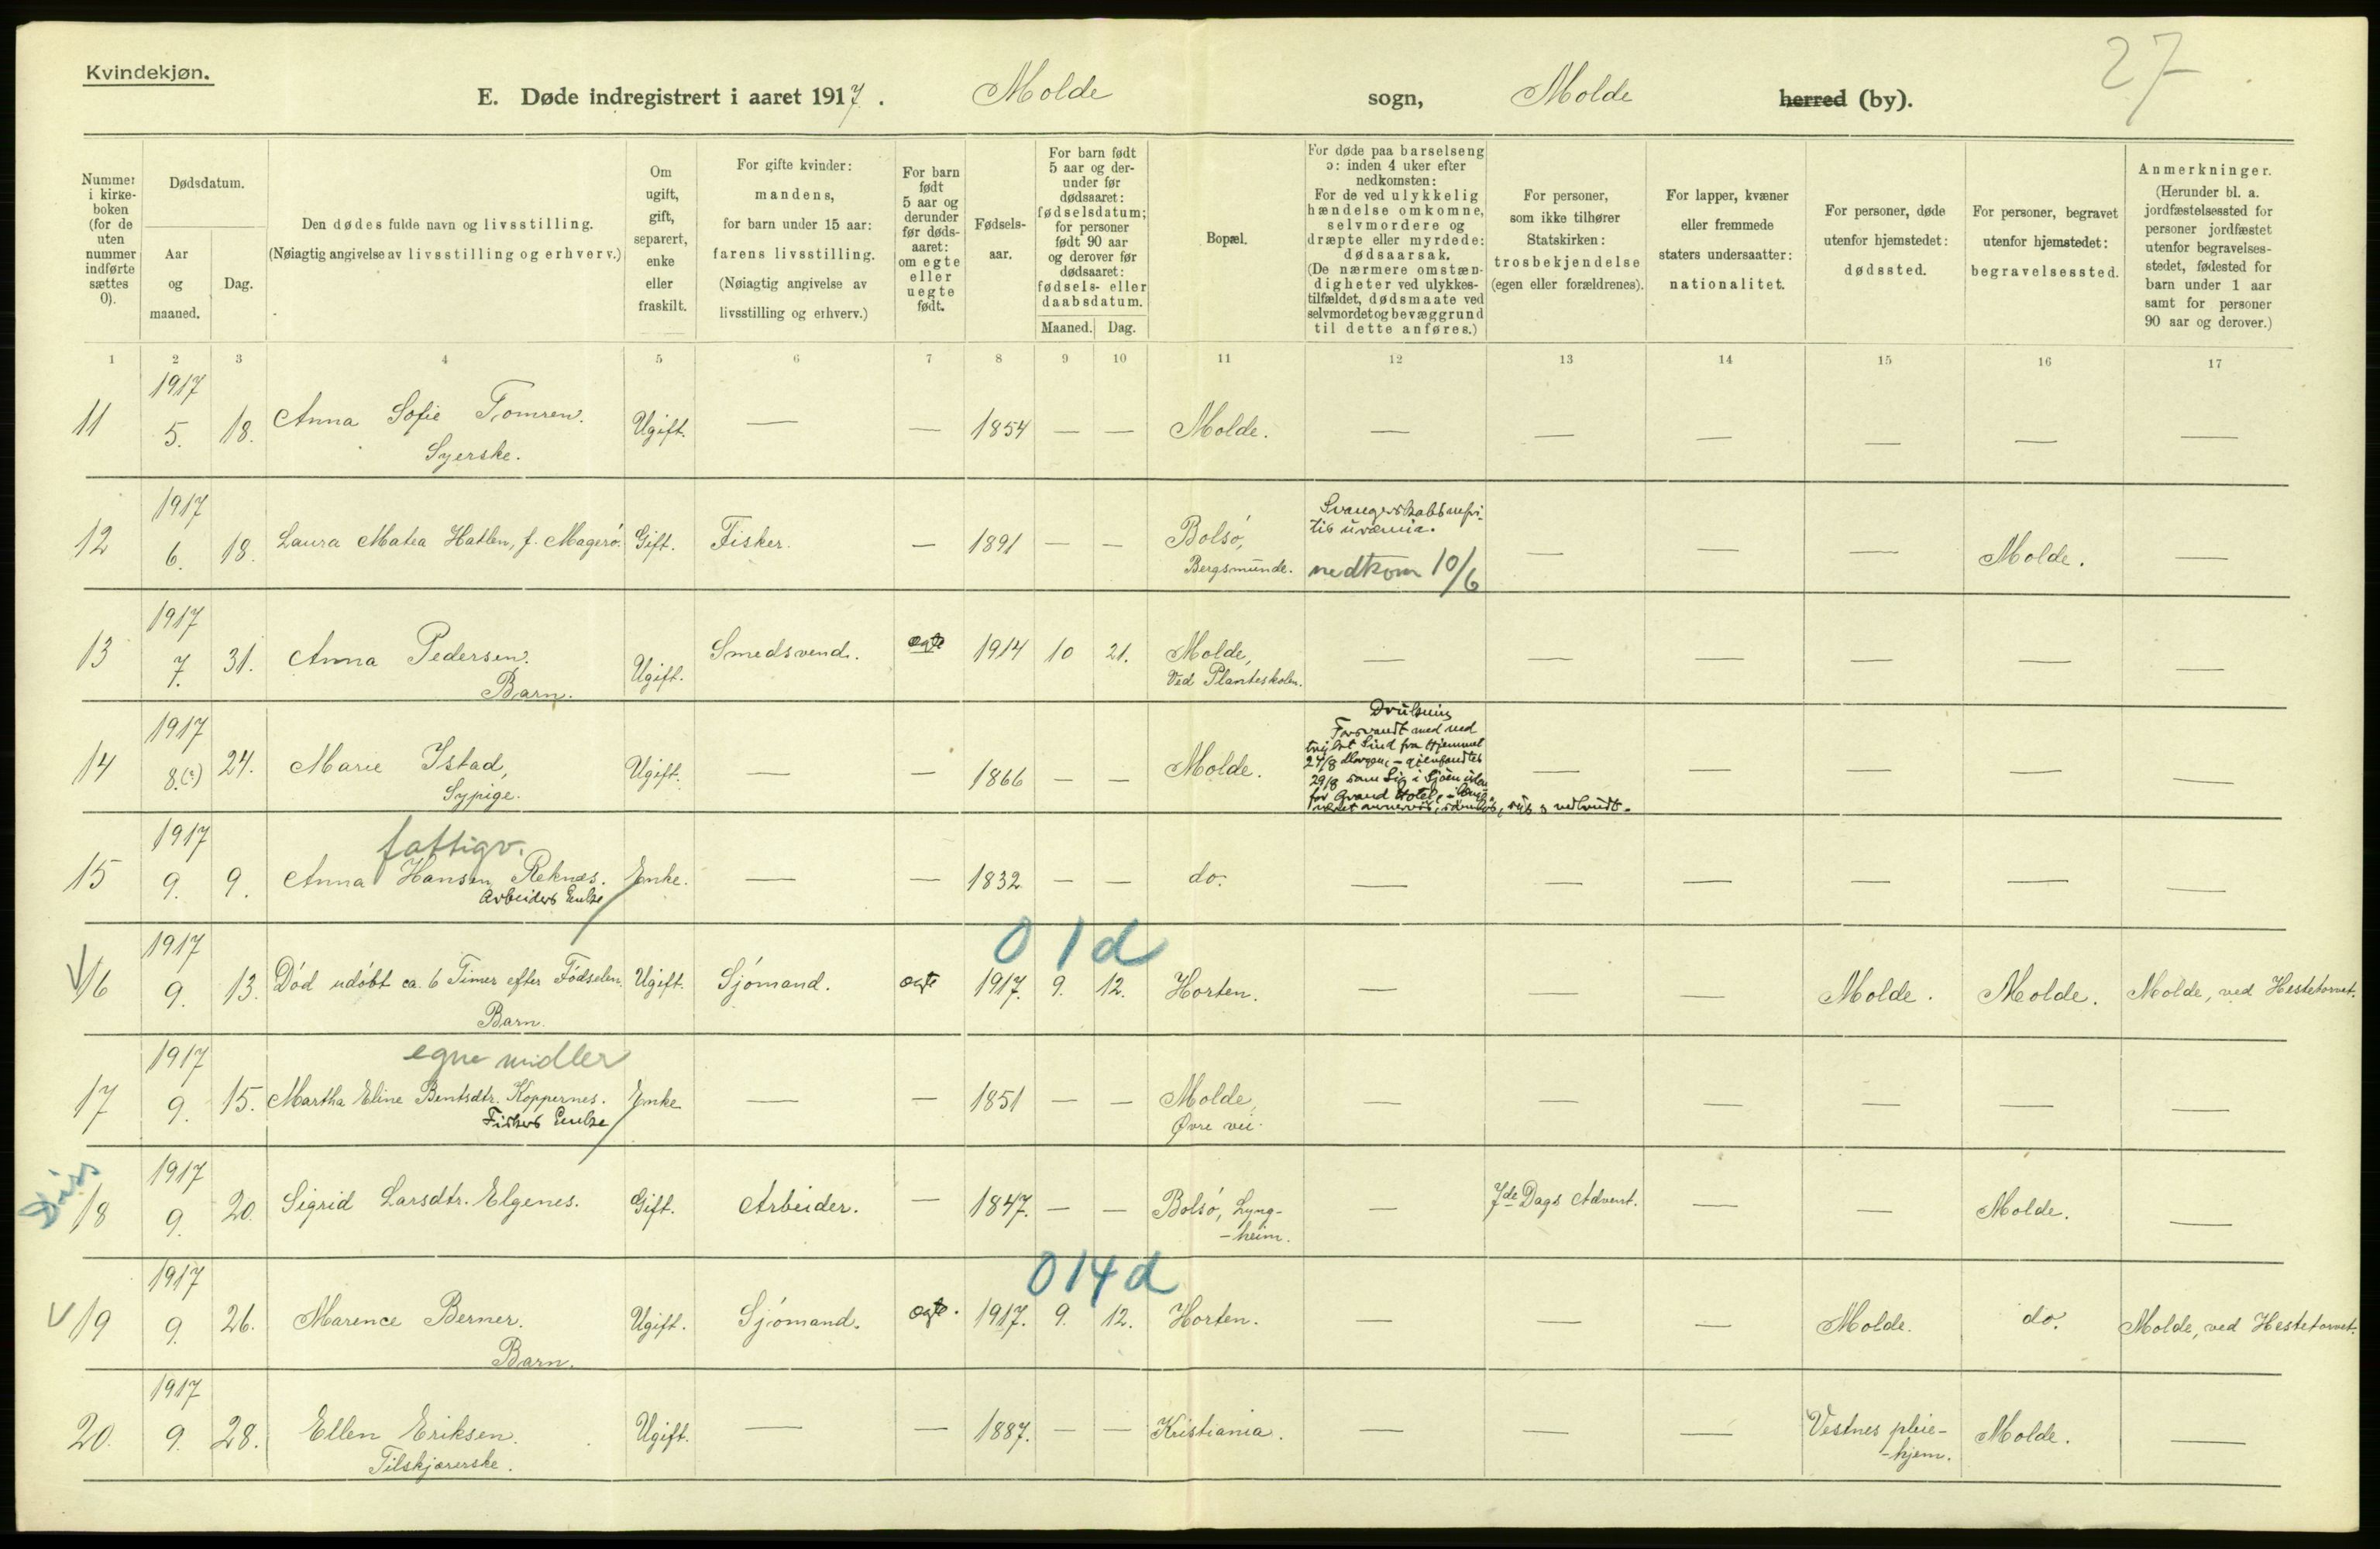 27
Kvindekjøn.
E. Døde indregistrert i aaret 1917. Molde sogn, Molde herred (by).
Nummer i kirkeboken (for de uten nummer indførte sættes 0).
Dødsdatum.
Aar og maaned.
Dag.
Den dødes fulde navn og livsstilling.
(Nøiagtig angivelse av livsstilling og erhverv.)
Om ugift, gift, separert, enke eller fraskilt.
For gifte kvinder: mandens, for barn under 15 aar: farens livsstilling. (Nøiagtig angivelse av livsstilling og erhverv.)
For barn født 5 aar og derunder før dødsaaret: om egte eller uegte født.
Fødselsaar.
For barn født 5 aar og derunder før dødsaaret: fødselsdatum; for personer født 90 aar og derover før dødsaaret: fødsels- eller daabsdatum.
Maaned. Dag.
Bopæl.
For døde paa barselseng ɔ: inden 4 uker efter nedkomsten: For de ved ulykkelig hændelse omkomne, selvmordere og dræpte eller myrdede: dødsaarsak. (De nærmere omstændigheter ved ulykkestilfældet, dødsmaate ved selvmordet og bevæggrund til dette anføres.)
For personer, som ikke tilhører Statskirken: trosbekjendelse (egen eller forældrenes).
For lapper, kvæner eller fremmede staters undersaatter: nationalitet.
For personer, døde utenfor hjemstedet: dødssted.
For personer, begravet utenfor hjemstedet: begravelsessted.
Anmerkninger. (Herunder bl. a. jordfæstelsessted for personer jordfæstet utenfor begravelsesstedet, fødested for barn under 1 aar samt for personer 90 aar og derover.)
1 2 3 4 5 6 7 8 9 10 11 12 13 14 15 16 17
1917
11 5. 18. Anna Sofie Tomren. Ugift. — — 1854 — — Molde. — — — — — —
Syerske.
1917
12 6. 18. Laura Matea Hatlen, f. Magerö. Gift. Fisker. — 1891 — — Bolsö, Svangerskabsnefritis uræmia. — — — Molde. —
Bergsmunde. nedkom 10/6
1917
13 7. 31. Anna Pedersen. Ugift. Smedsvend. egte 1914 10 21. Molde, — — — — — —
Barn. Ved Planteskolen.
1917
14 8.(?) 24. Marie Istad, Ugift. — — 1866 — — Molde. — — — — —
Sypige.
Drukning
Forsvandt med ned
trykt Sind fra Hjemmet
24/8 Morgen, - gjenfandtes
29/8 som Lig i Sjöen uten
for Grand Hotel,
1917
fattigv.
15 9. 9. Anna Hansen Reknes. Enke. — — 1832 — — do. — — — — — —
Arbeiders Enke
1917
01d
V 16 9. 13. Död udöbt ca. 6 Timer efter Födselen. Ugift. Sjömand. egte 1917. 9. 12. Horten. — — — Molde. Molde. Molde, ved Hestetorvet.
Barn.
1917
egne midler
17 9. 15. Martha Eline Bentsdtr. Koppernes. Enke — — 1851 — — Molde, — — — — — —
Fiskers Enke Øvre vei.
1917
Dis
18 9. 20. Sigrid Larsdtr. Elgenes. Gift. Arbeider. — 1847. — — Bolsö, Lyng- — 7de Dags Advent. — — Molde. —
-heim.
1917
014d
V 19 9. 26. Marence Berner. Ugift. Sjömand. egte. 1917. 9. 12. Horten. — — — Molde. do. Molde, ved Hestetorvet.
Barn.
1917
20. 9. 28. Ellen Eriksen. Ugift. — — 1887. — — Kristiania. — — — Vestnes pleie- Molde. —
Tilskjærerske. -hjem.